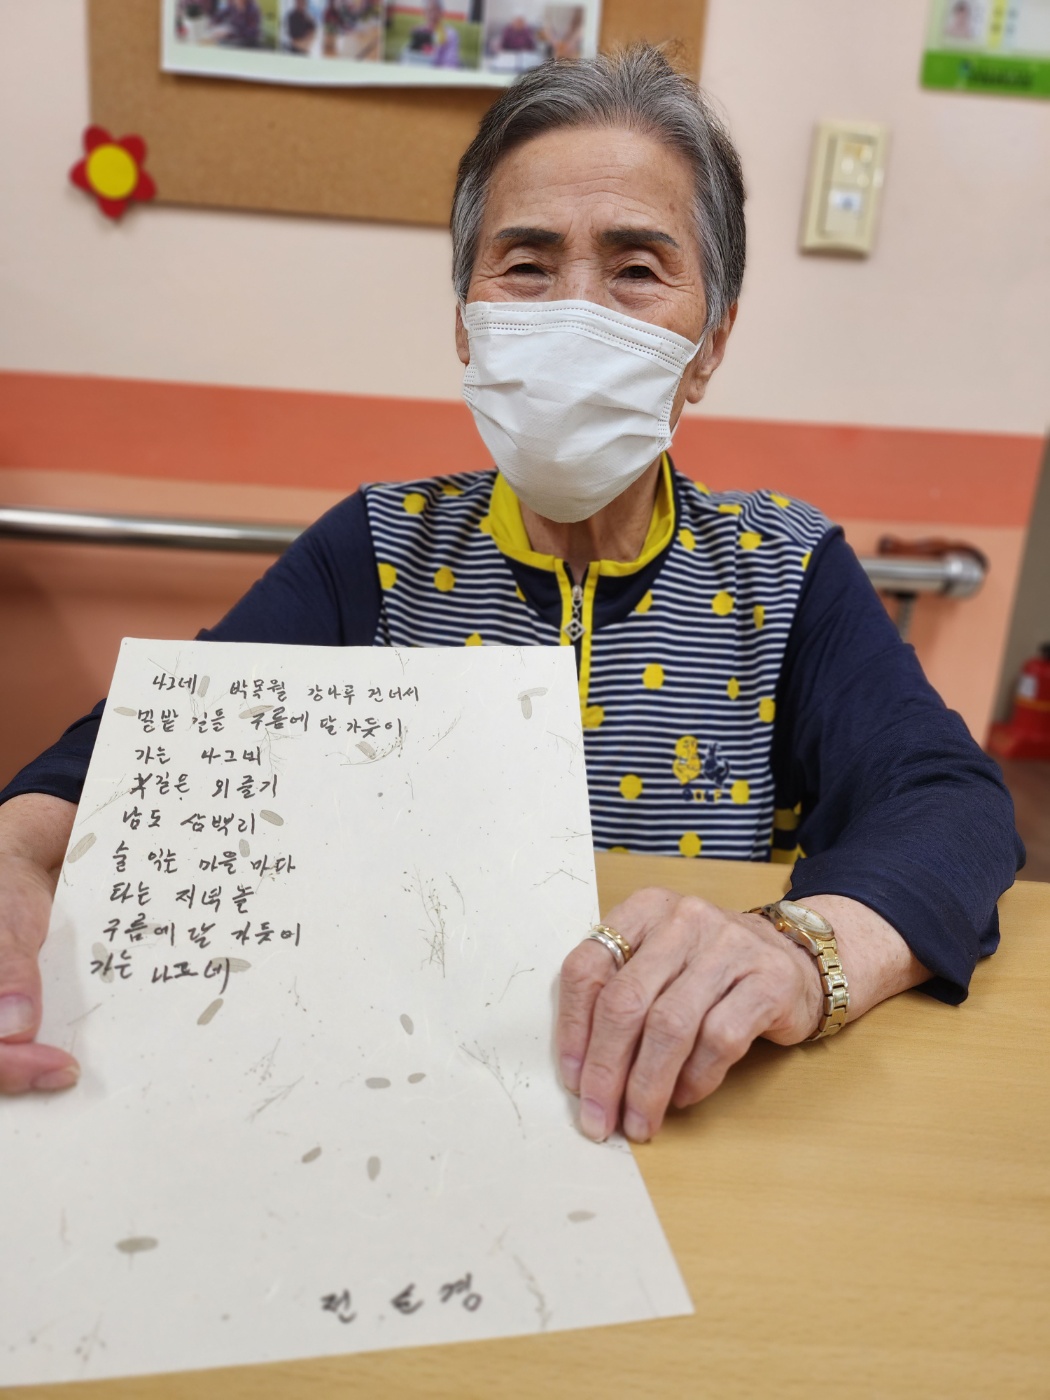 나그네 박목월 강나루 건너서
밀밭 길을 구름에 달 가듯이
가는 나그네
길은 외줄기
남도 삼백리
술 익는 마을 마다
타는 저녁 놀
구름에 달 가듯이
가는 나그네
전 순 경